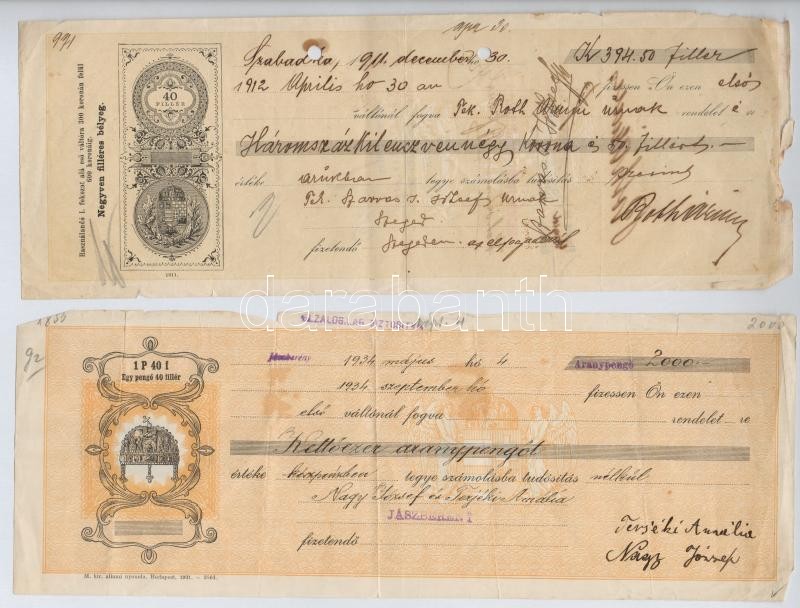 991
Szabadka, 1911. december hó 30.
K 394.50 fillér
1912 Április hó 30 án
fizessen Ön ezen első
váltónál fogva Tek. Roth úrnak rendelet é re
Háromszázkilenczvennégy Korona és 50 fillért.—
értéke árúkban tegye számolásba tudósítás szerint
Tek. Szarvas J. József úrnak
Szeged
fizetendő Szegeden
40
FILLÉR
Használandó 1. fokozat alá eső váltóra 300 koronán felül
600 koronáig.
Negyven filléres bélyeg.
1911.
darabanth
2000
92
1 P 40 f
Egy pengő 40 fillér
Jászberény 1934 május hó 4
Aranypengő 2000.—
1934 szeptember hó
fizessen Ön ezen
első váltónál fogva rendelet—re
Kettőezer aranypengőt
értéke készpénzben tegye számolásba tudósítás nélkül
Nagy József és Terjéki Amália
JÁSZBERÉNY
fizetendő
Terjéki Amália
Nagy József
M. kir. állami nyomda, Budapest, 1931.